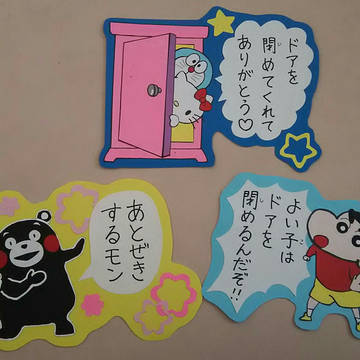 ドアを
閉めてくれて
ありがとう♡
あとぜき
するモン
よい子は
ドアを
閉めるんだぞ!!